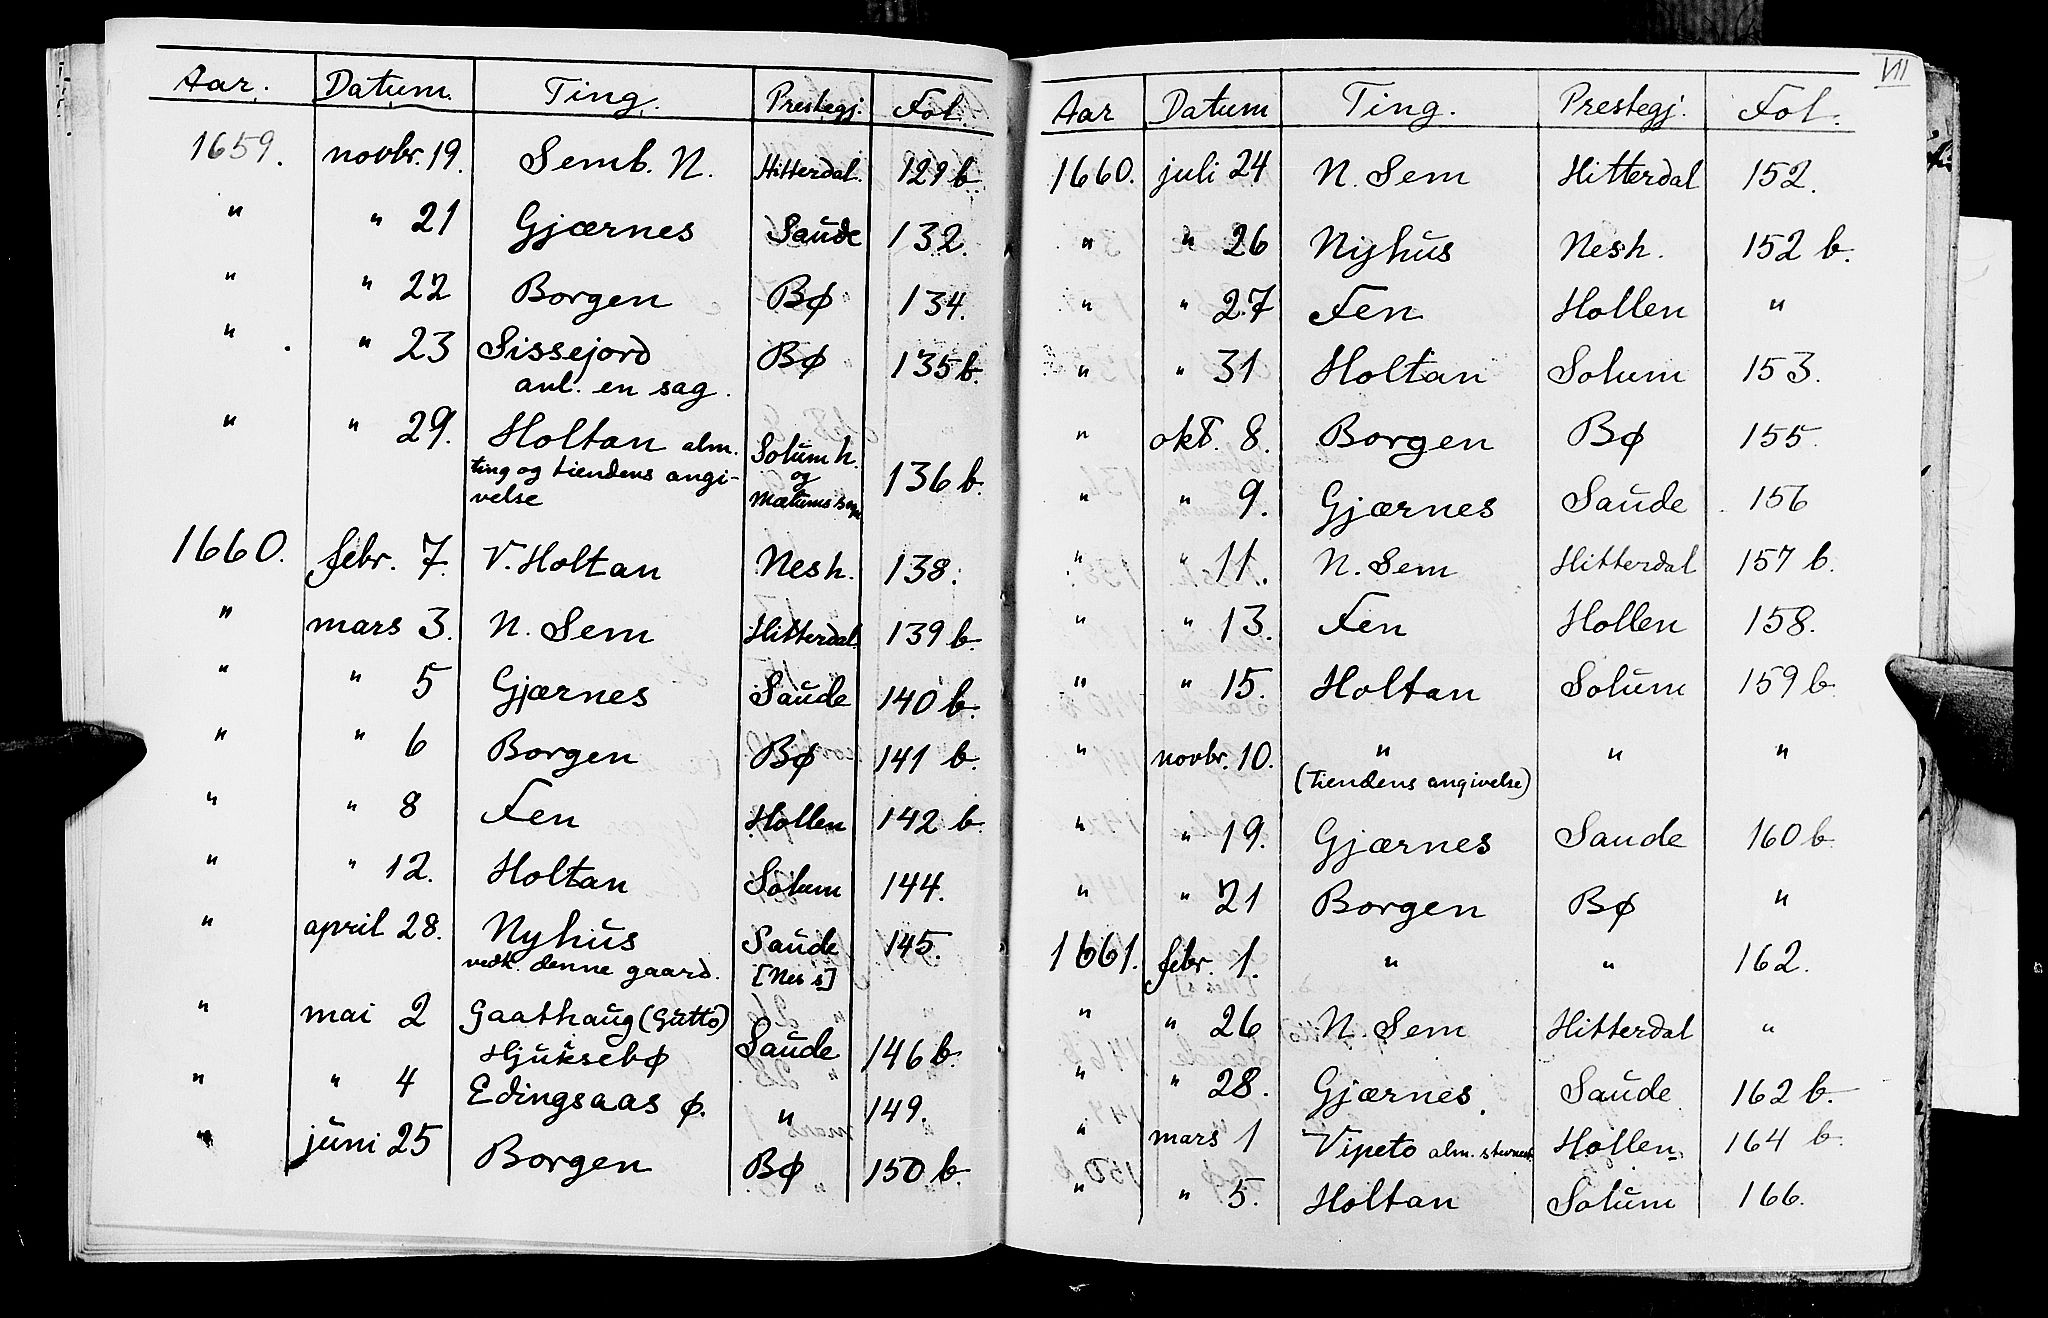 Aar. Datum. Ting. Prestegj. Fol.
1659. novbr. 19. Semb. N. Hitterdal. 129 b
" " 21 Gjærnes Saude 132.
" " 22 Borgen Bø 134.
" " 23 Sissejord Bø 135 b.
anl. en sag.
" " 29. Holtan alm. Solum h. 136 b.
ting og tiendens angi- og
velse Mælums
1660. febr. 7. V. Holtan Nesh. 138.
" mars 3. N. Sem Hitterdal. 139 b.
" " 5 Gjærnes Saude 140 b.
" " 6 Borgen Bø 141 b.
" " 8 Fen Hollen 142 b.
" " 12. Holtan Solum 144.
" april 28. Nyhus Saude 145.
vedk. denne gaard. [Nes's]
" mai 2 Gaathaug (Gutto) Saude 146 b.
Hjuksebø
" " 4 Edingsaas ø. " 149.
" juni 25 Borgen Bø 150 b.
VII
Aar Datum Ting. Prestegj. Fol.
1660. juli 24 N. Sem Hitterdal 152.
" " 26 Nyhus Nesh. 152 b.
" " 27 Fen Hollen "
" " 31 Holtan Solum 153.
" okt. 8. Borgen Bø 155.
" " 9. Gjærnes Saude 156
" " 11. N. Sem Hitterdal 157 b.
" " 13. Fen Hollen 158.
" " 15. Holtan Solum 159 b
" novbr. 10. " " "
(tiendens angivelse)
" " 19. Gjærnes Saude 160 b
" " 21 Borgen Bø "
1661. febr. 1. " " 162.
" " 26 N. Sem Hitterdal "
" " 28. Gjærnes. Saude 162 b.
" mars 1 Vipeto alm. stevnest. Hollen 164 b.
" " 5. Holtan Solum 166.